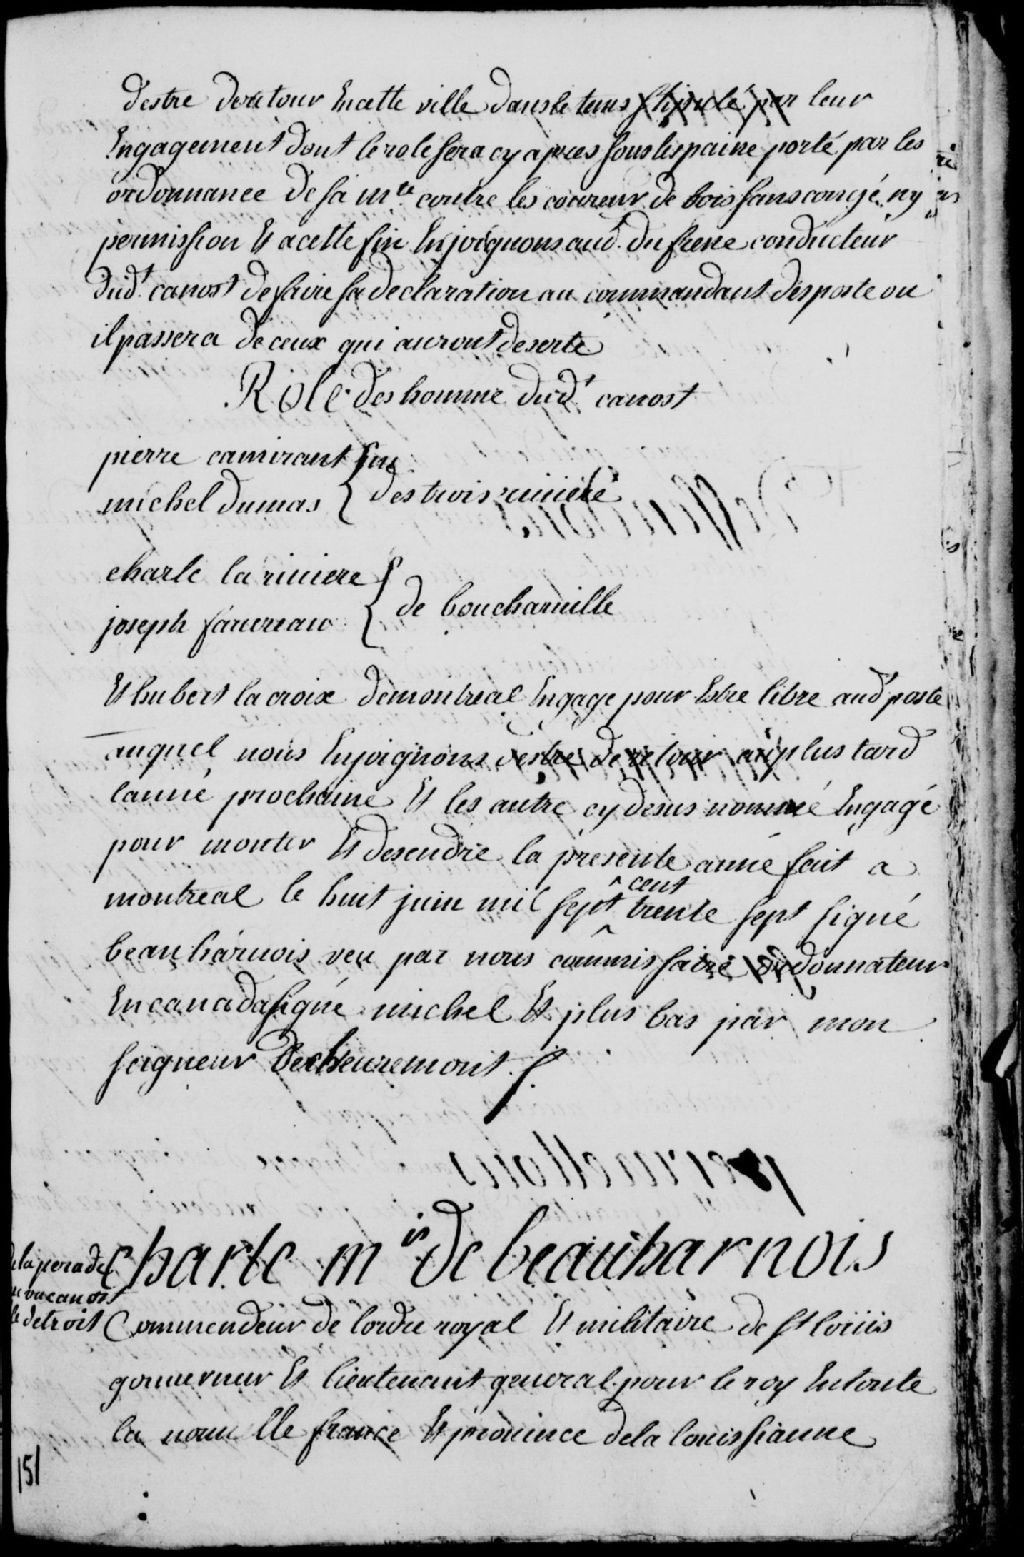 destre deretour Encette ville dans le tems stipulé par leur
Engagement dont le role sera cy apres sous les paine porté par les
ordonnance de sa mte contre les coureur de bois sans congé ny
permission Et a cette fin Enjoignons aud. dufrene conducteur
dudt canost de faire sa declaration au commandant des poste ou
il passera de ceux qui auront deserté
Role des homme dudt canost
pierre camirant
michel dumas { des trois riviere
charle la riviere
joseph favreau { de boucharville
Et hubert la croix de montreal Engagé pour Estre libre audt poste
auquel nous Enjoignons destre de retour au plus tard
lanné prochaine Et les autre cy desus nommé Engagé
pour monter Et desendre la presente anné fait a
montreal le huit juin mil sept cent trente sept signé
beauharnois veu par nous commissaire ordonnateur
En canada signé michel Et plus bas par mon
seigneur Decheuremont
charle mis de beauharnois
de la perade
un canost
le detroit
Commendeur de lordre royal Et militaire de st louis
gouverneur Et lieutenant general pour le roy En toute
la nouvelle france Et province de la louissianne
151